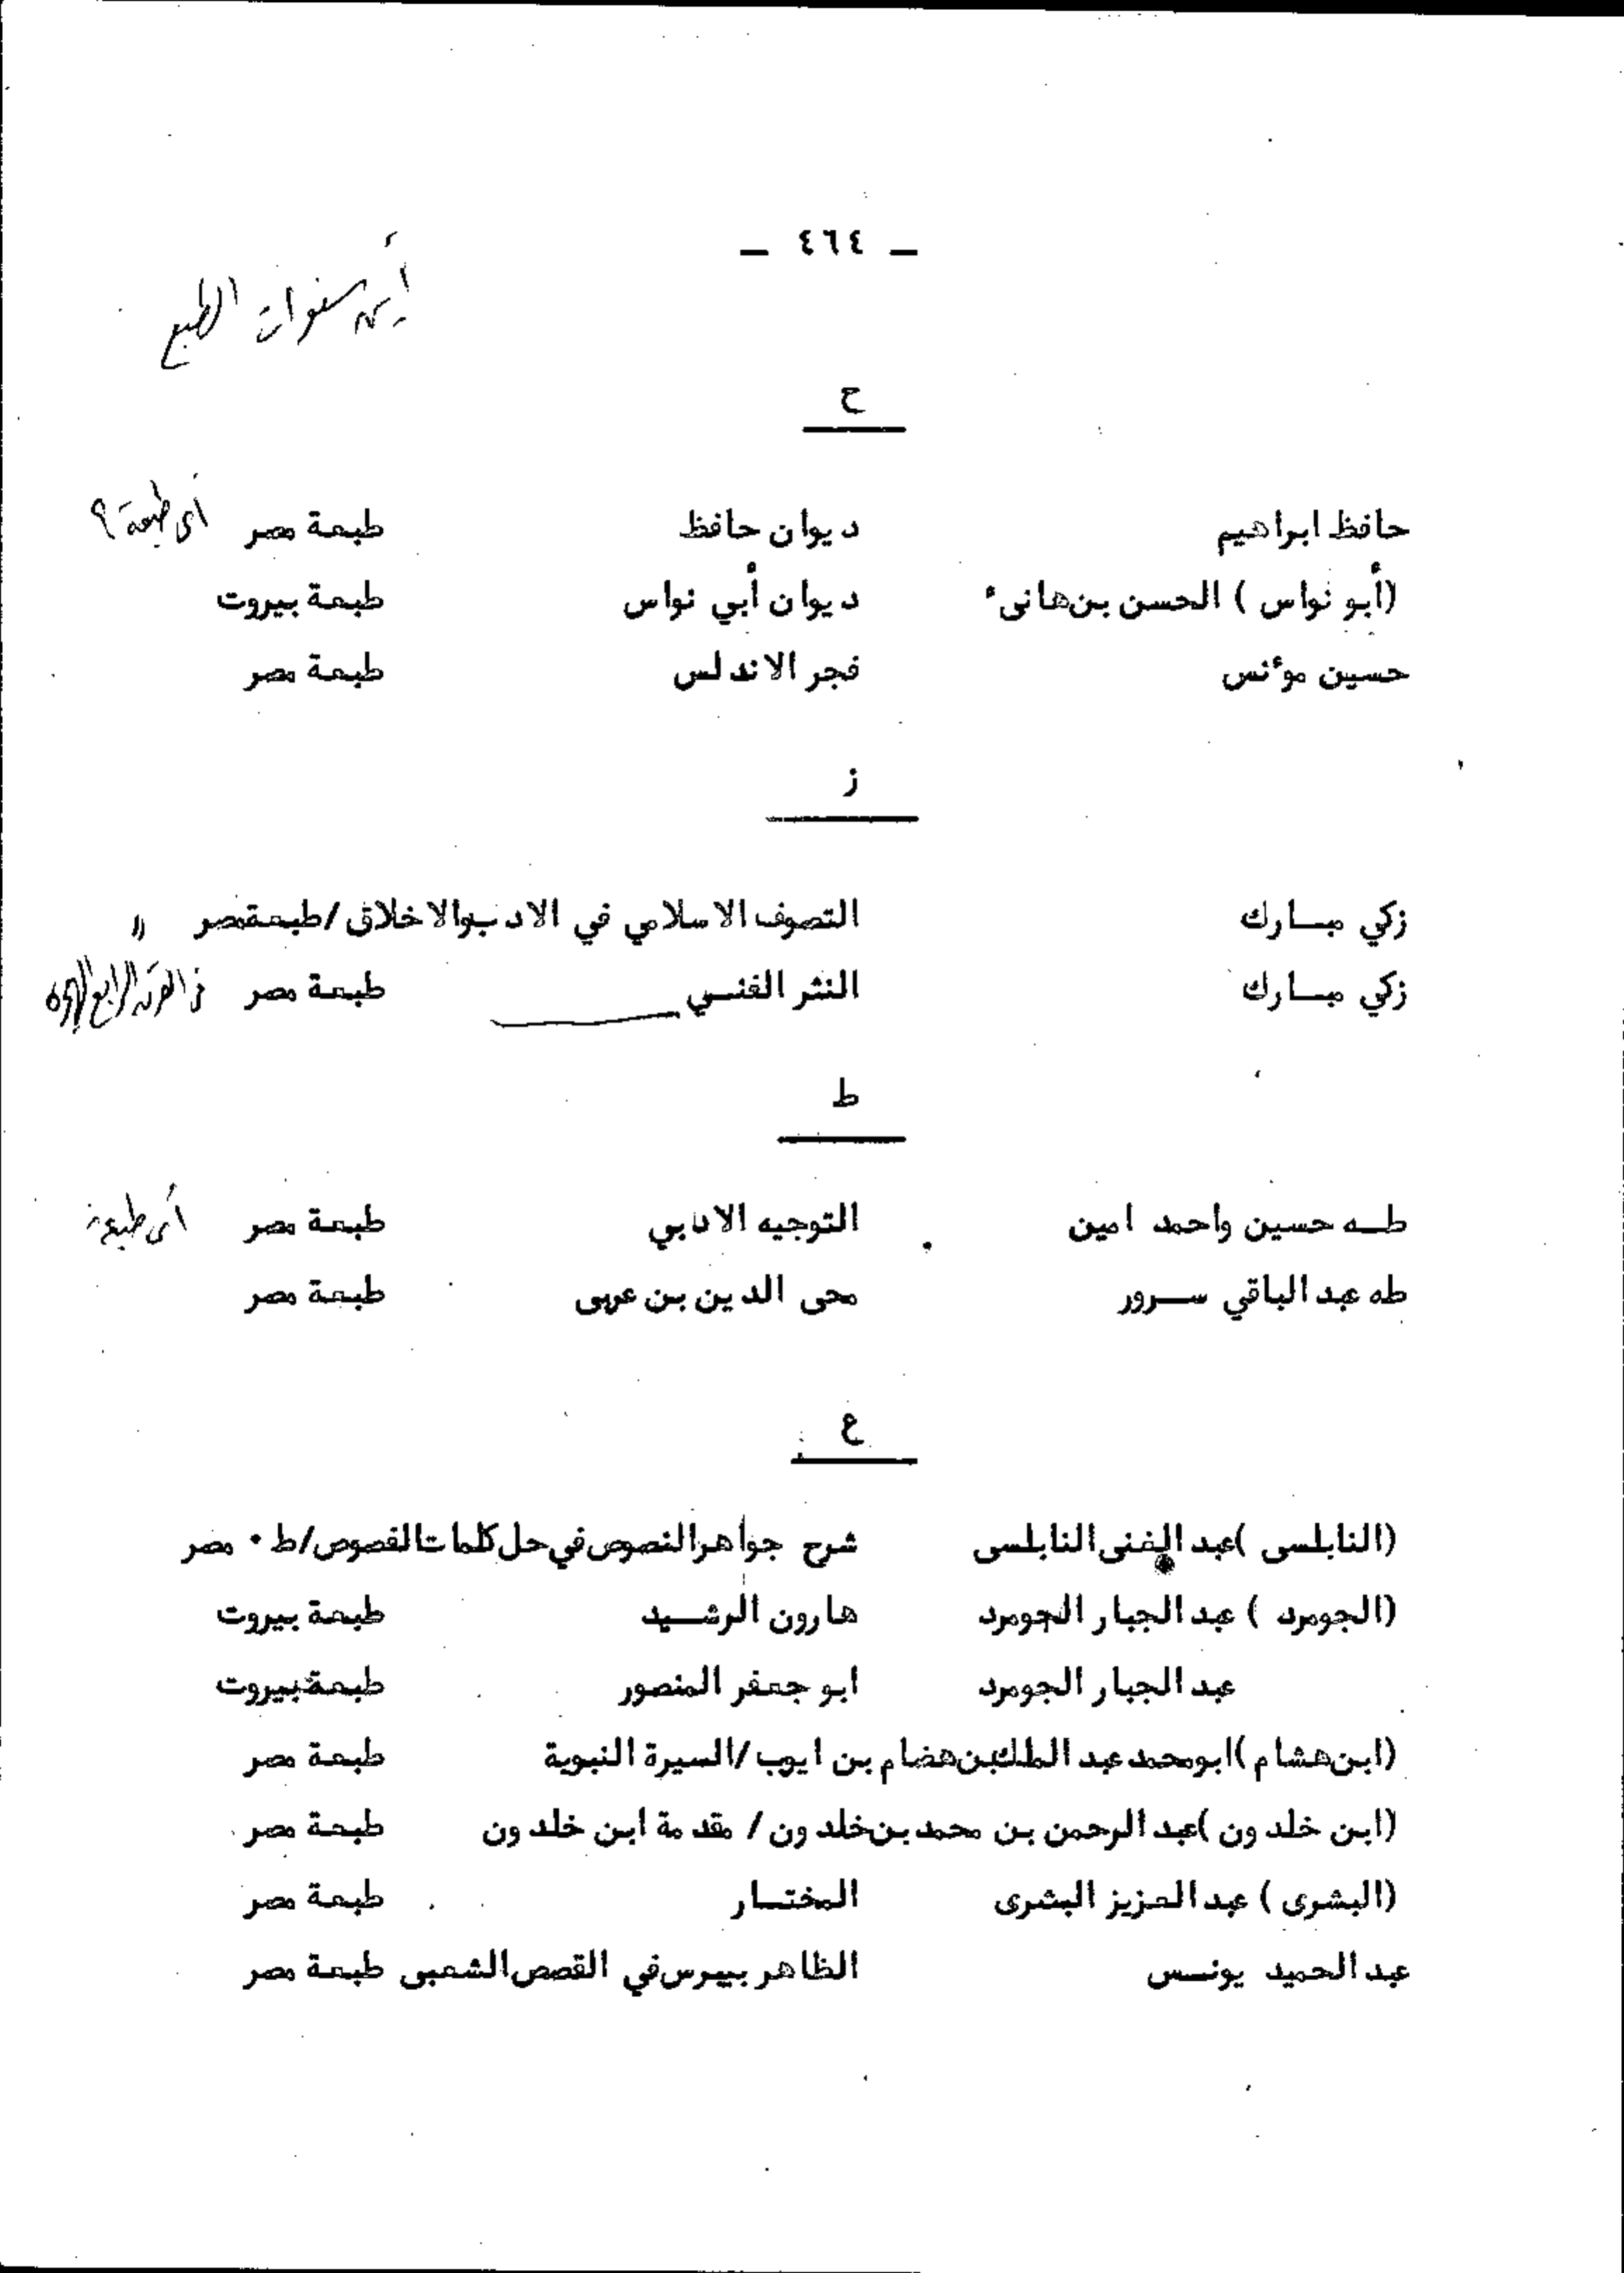 ـ ٤٦٤ ـ
أين سنوات الطبع
ح
حافظ ابراهيم ديوان حافظ طبعة مصر أى طبعة ؟
(أبو نواس ) الحسن بن هانىء ديوان أبي نواس طبعة بيروت
حسين موءنس فجر الاندلس طبعة مصر
ز
زكي مبــارك التصوف الاسلامي في الادب والاخلاق /طبعة مصر "
زكي مبــارك النثر الفنــي طبعة مصر في القرن الرابع الهجري
ط
طــه حسين واحمد امين التوجيه الادبي طبعة مصر أى طبعة
طه عبد الباقي ســرور محى الدين بن عربى طبعة مصر
ع
(النابلسى )عبد الغنى النابلسى شرح جواهر النصوص في حل كلمات الفصوص/ط ٠ مصر
(الجومرد ) عبد الجبار الجومرد هارون الرشــيد طبعة بيروت
عبد الجبار الجومرد ابو جعفر المنصور طبعة بيروت
(ابن هشام )ابو محمد عبد الملك بن هضام بن ايوب /السيرة النبوية طبعة مصر
(ابن خلدون )عبد الرحمن بن محمد بن خلدون / مقدمة ابن خلدون طبعة مصر
(البشرى ) عبد العزيز البشرى المختــار طبعة مصر
عبد الحميد يونــس الظاهر بيبرس في القصص الشعبى طبعة مصر